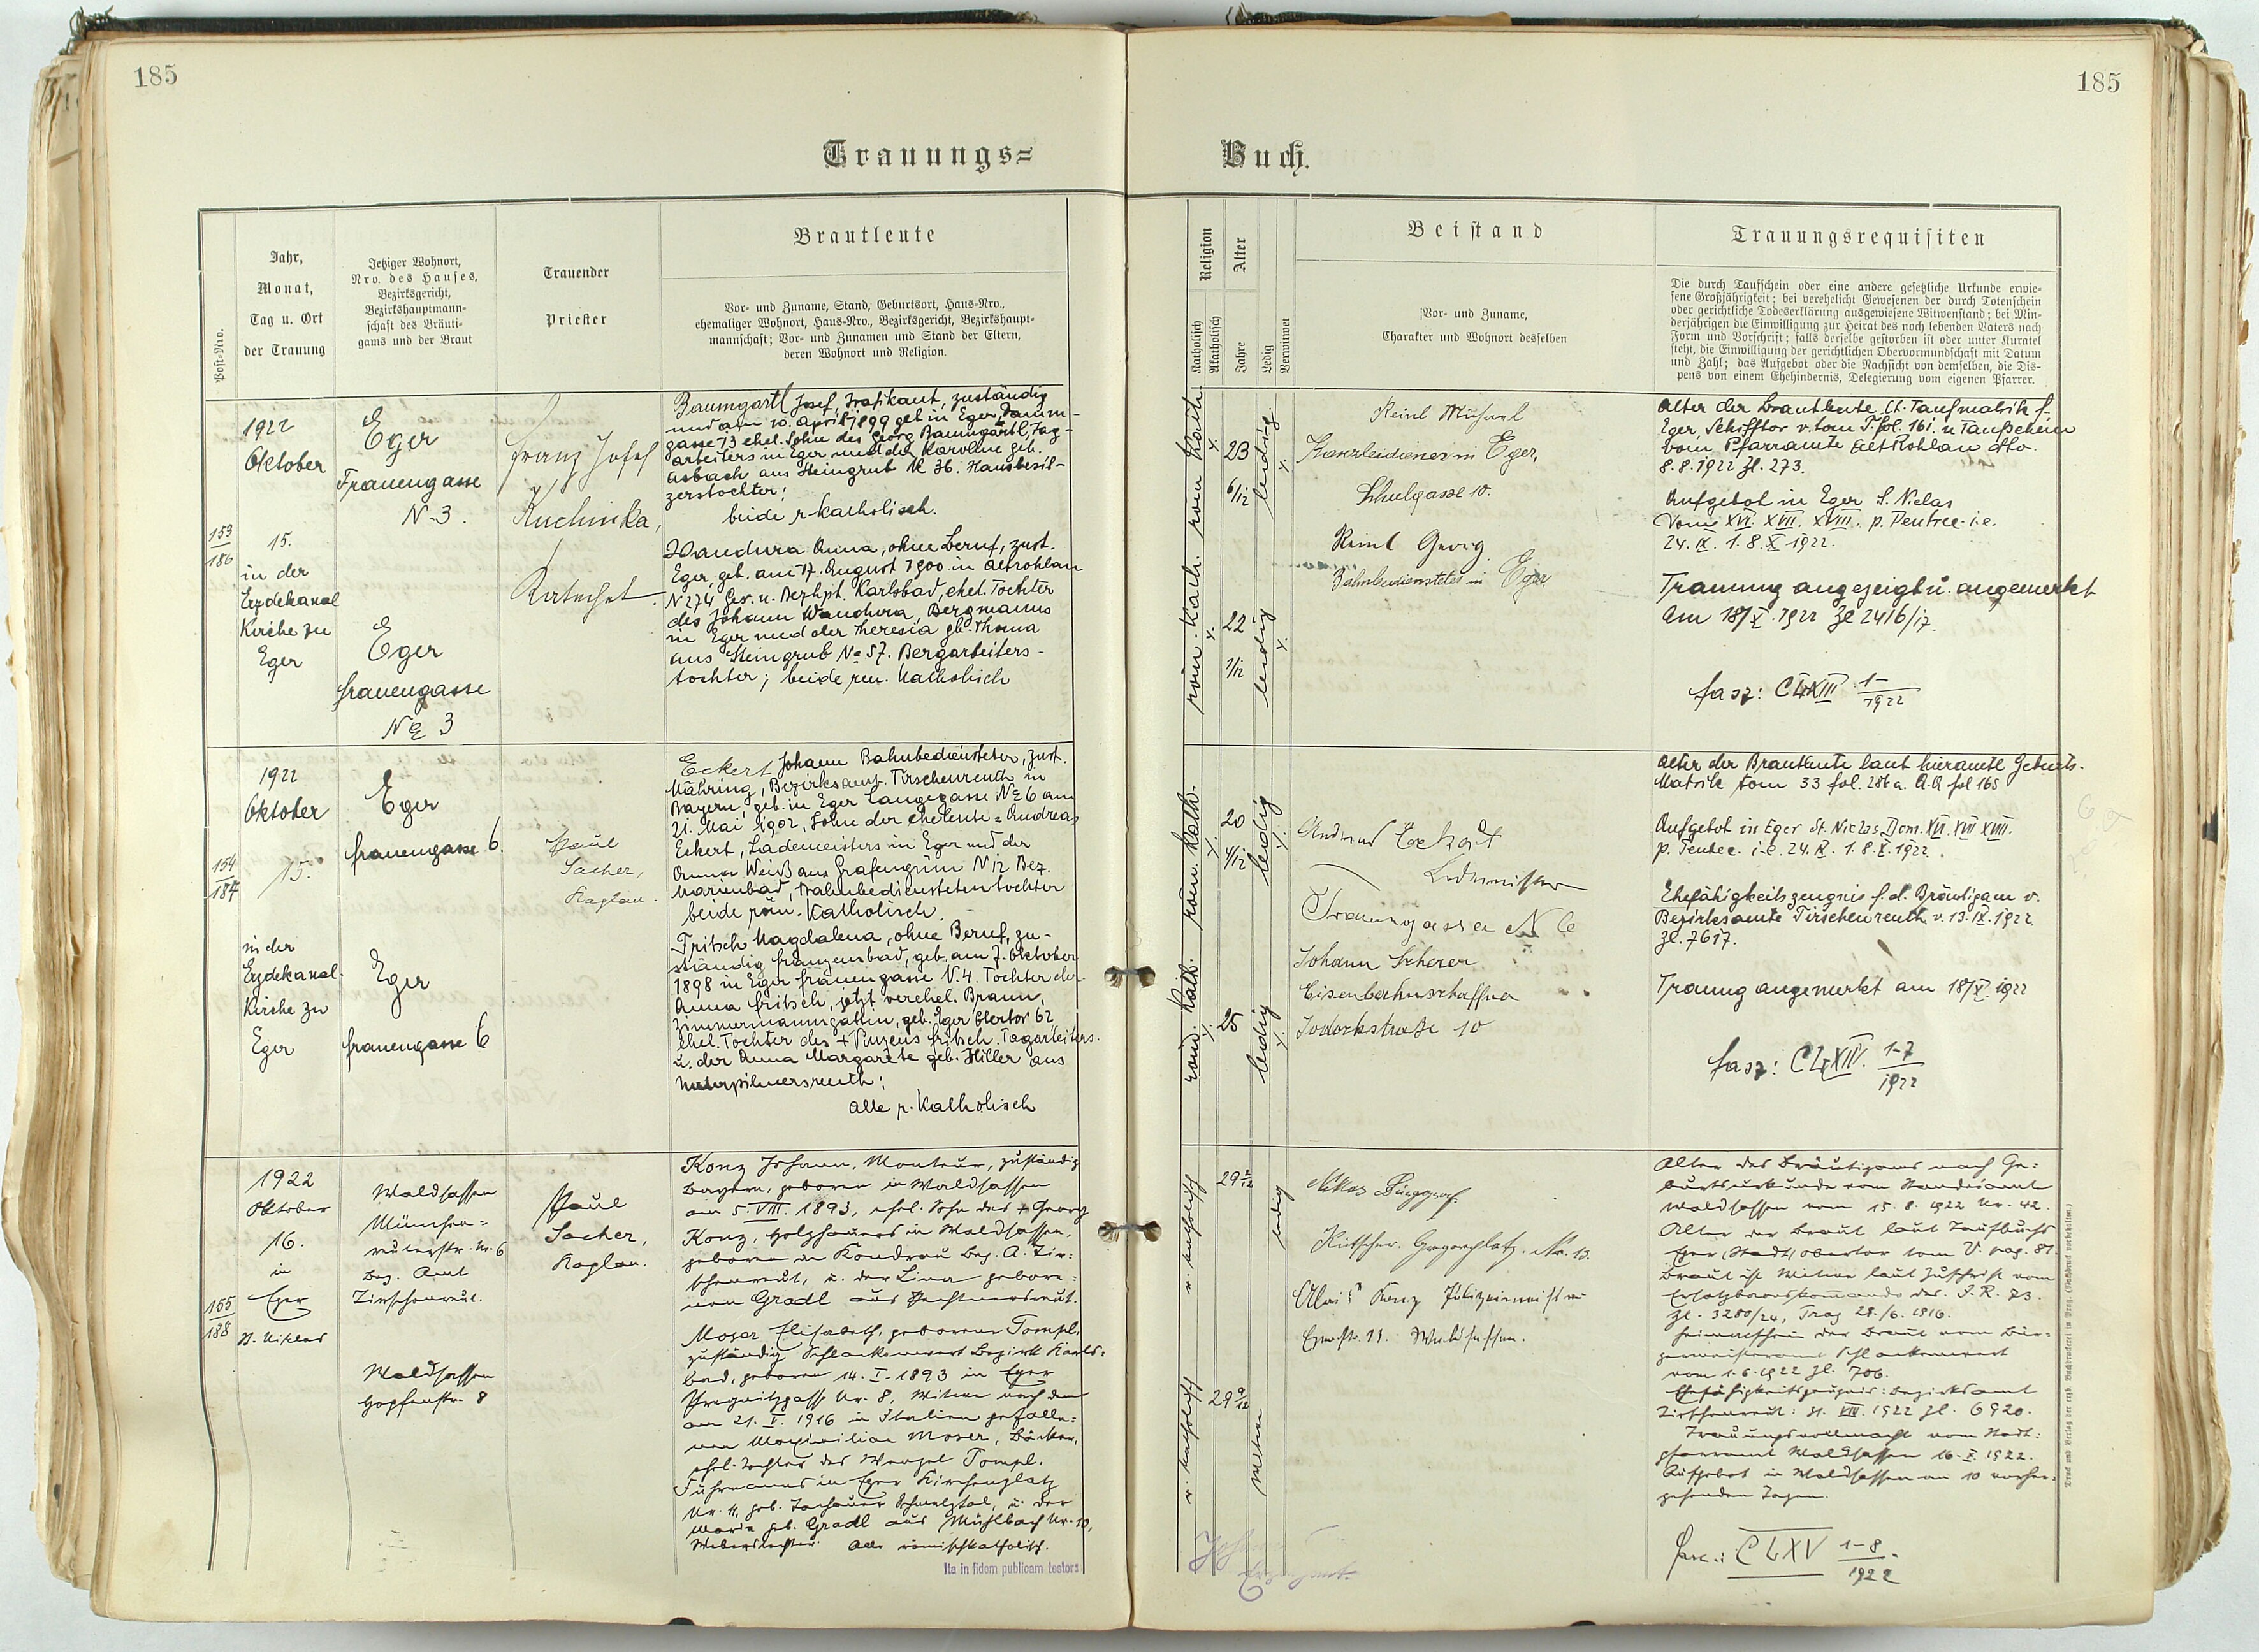 185
185
Trauungs=
Buch.
Post-Nro.
Jahr,
Monat,
Tag u. Ort
der Trauung
Jetziger Wohnort,
Nro. des Hauses,
Bezirksgericht,
Bezirkshauptmann-
schaft des Bräuti-
gams und der Braut
Trauender
Priester
Brautleute
Vor- und Zuname, Stand, Geburtsort, Haus-Nro.,
ehemaliger Wohnort, Haus-Nro., Bezirksgericht, Bezirkshaupt-
mannschaft; Vor- und Zunamen und Stand der Eltern,
deren Wohnort und Religion.
Religion
Katholisch
Akatholisch
Alter
Jahre
Ledig
Verwitwet
Beistand
Vor- und Zuname,
Charakter und Wohnort desselben
Trauungsrequisiten
Die durch Taufschein oder eine andere gesetzliche Urkunde erwie-
sene Großjährigkeit; bei verehelicht Gewesenen der durch Totenschein
oder gerichtliche Todeserklärung ausgewiesene Witwenstand; bei Min-
derjährigen die Einwilligung zur Heirat des noch lebenden Vaters nach
Form und Vorschrift; falls derselbe gestorben ist oder unter Kuratel
steht, die Einwilligung der gerichtlichen Obervormundschaft mit Datum
und Zahl; das Aufgebot oder die Nachsicht von demselben, die Dis-
pens von einem Ehehindernis, Delegierung vom eigenen Pfarrer.
153
186
1922
Oktober
15.
in der
Erzdekanal
Kirche zu
Eger
Eger
Frauengasse
N-3.
Eger
frauengasse
No 3
Franz Josef
Kuchinka,
Katechet.
Baumgartl Josef, Trafikant, zuständig
und am 10. April 1899 geb in Eger, Damm-
gasse 13 ehel. Sohn des Georg Baumgartl, Tag-
arbeiters in Eger und der Karoline geb.
Asbach aus Steingrub N 36. Hausbesit-
zerstochter;
beide r-katholisch.
Wandura Anna, ohne Beruf, zust.
Eger, geb. am 17. August 1900 in Altrohlau
N 274 Ger. u. Bezhpt. Karlsbad, ehel. Tochter
des Johann Wandura, Bergmanns
in Eger und der Theresia gb. Thoma
aus Steingrub No 57. Bergarbeiters-
tochter; beide röm. Katholisch
röm Kath.
23
6/12
ledig
röm. Kath.
22
1/12
ledig
Reinl Michael
Kanzleidiener in Eger,
Schulgasse 10.
Reinl Georg
Bahnbediensteter in Eger
Alter der Brautleute lt. Taufmatrik f.
Eger, Schifftor v. tom S. fol. 161. u Taufschein
vom Pfarramte Altrohlau dto.
8.8.1922 Zl. 273.
Aufgebot in Eger S. Niclas
vom XVI. XVII. XVIII. p. Pentec. i.e.
24. IX. 1. 8. X 1922.
Trauung angezeigt u. angemerkt
Am 18/X. 1922 Zl 2416/17.
fasz: CLXIII 1-
1922
154
187
1922
Oktober
15.
in der
Erzdekanal-
Kirche zu
Eger
Eger
frauengasse 6.
Eger
frauengasse 6
Paul
Sacher,
Kaplan.
Eckert Johann Bahnbediensteter, zust.
Mähring, Bezirksamt. Tirschenreuth in
Bayern, geb. in Eger Langegasse No 6 am
21. Mai 1902, Sohn der Eheleute = Andreas
Eckert, Lademeisters in Eger und der
Anna Weiß aus Grafengrün N 12 Bez.
Marienbad, Bahnbedienstetentochter
beide röm. Katholisch.
Fritsch Magdalena, ohne Beruf, zu-
ständig Franzensbad, geb. am 7. Oktober
1898 in Eger frauengasse N. 4. Tochter der
Anna Fritsch, jetzt verehel. Braun,
Zimmermannsgattin, geb. Eger Obertor 62,
ehel. Tochter des + Vinzens fritsch, Tagarbeiters
u. der Anna Margarete geb. Hiller aus
Unterpilmersreuth;
alle r. Katholisch
röm. Kath.
20
4/12
ledig
röm. Kath.
25
ledig
Andreas Eckert
Lademeister
Frauengasse N 6
Johann Scherer
Eisenbahnschaffner
Jodokstraße 10
Alter der Brautleute laut hieramtl Geburts-
Matrik tom 33 fol. 287 a. A.A fol 165
Aufgebot in Eger St. Niclas Dom. XVI. XVII XVIII.
p. Pentec. i.e. 24. IX. 1. 8. X. 1922.
Ehefähigkeitszeugnis f. d. Bräutigam v.
Bezirksamte Tirschenreuth v. 13. IX. 1922
Zl. 7617.
Trauung angemerkt am 18/X. 1922
fasz: CLXIV. 1-7
1922
155
188
1922
Oktober
16.
in
Eger
St. Niklas
Waldsassen
München=
reuterstr. Nr. 6
Bez. Amt
Tirschenreut.
Waldsassen
Hopfenstr. 8
Paul
Sacher,
Kaplan.
Konz Johann, Monteur, zuständig
Bayern, geboren in Waldsassen
am 5. VIII. 1893, ehel. Sohn des + Georg
Konz, Holzhauers in Waldsassen,
geboren in Kondrau Bez. A. Tir=
schenreut, u. der Lina gebore=
nen Gradl aus
Moser Elisabeth, geborene Tompl,
zuständig Schlackenwert Bezirk Karls=
bad, geboren 14. I. 1893 in Eger
Nr. 8, Witwe nach dem
am 21. V. 1916 in Italien gefalle=
nen Maximilian Moser, Bäcker,
ehel. Tochter des Wenzel Tompl,
Fuhrmanns in Eger Kirchenplatz
Nr. 11, geb. u. der
Maria geb. Gradl aus Mühlbach Nr. 10,
Weberstochter. Alle römischkatholisch.
Ita in fidem publicam testors
r. katholisch
29 2/12
ledig
r. katholisch
29 9/12
Witwe
Kutscher. Nr. 13.
Alois Konz
Waldsassen.
Alter des Bräutigams nach Ge=
burtsurkunde vom Standesamt
Waldsassen vom 15. 8. 1922 Nr. 42.
Alter der Braut laut Taufbuchs
Eger (Stadt) Obertor tom V. pag. 81.
Braut ist Witwe laut Zuschrift vom
des I. R. 73.
Zl. 3280/24, Prag 28./6. 1916.
Heimatschein der Braut vom Bür=
germeisteramt Schlackenwert
vom 1. 6. 1922 Zl. 706.
Ehefähigkeitszeugnis: Bezirksamt
Tirschenreut: 31. VIII. 1922 Zl. 6920.
Trauungsvollmacht vom Stadt=
pfarramt Waldsassen 16. X. 1922.
Aufgebot in Waldsassen an 10 vorher=
gehenden Tagen.
Fasc.: CLXV 1-8
1922